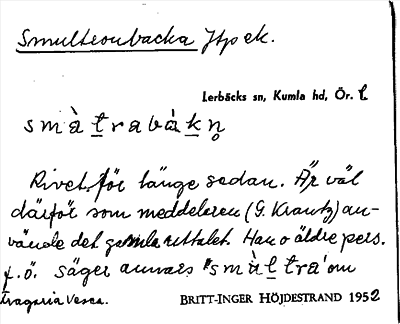 Smulteonbacka Jtp ek.
Lerbäcks sn, Kumla hd, Ör. l
smàtrabàkn̥
Rivet för länge sedan. Är väl
därför som meddelaren (G. Krantz) an-
vände det gamla uttalet. Han o äldre pers.
f.ö. säger annars "smùltra" om
Fragaria Vesca.
BRITT-INGER HÖJDESTRAND 1952